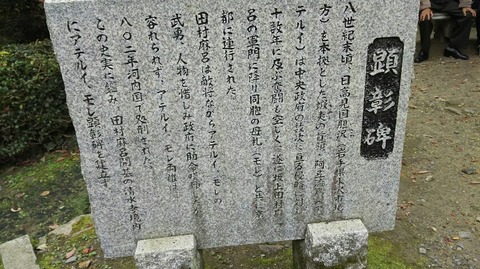 顕彰碑
八世紀末頃、日高見国胆沢(岩手県水沢市
方)を本拠とした蝦夷の首領、阿弖流為(ア
テルイ)は中央政府の
十数年に及ぶ奮闘も空しく、遂に坂上田村麻
呂の軍門に降り同胞の母礼(モレ)と共に京
都に連行された。
田村麻呂は敵将ながらアテルイ、モレの
武勇、人物を惜しみ政府に助命
容れられず、アテルイ、モレ両雄
八〇二年河内国で処刑された。
この史実に鑑み、田村麻呂開基の清水寺境内
にアテルイ、モレ顕彰碑を建立す。